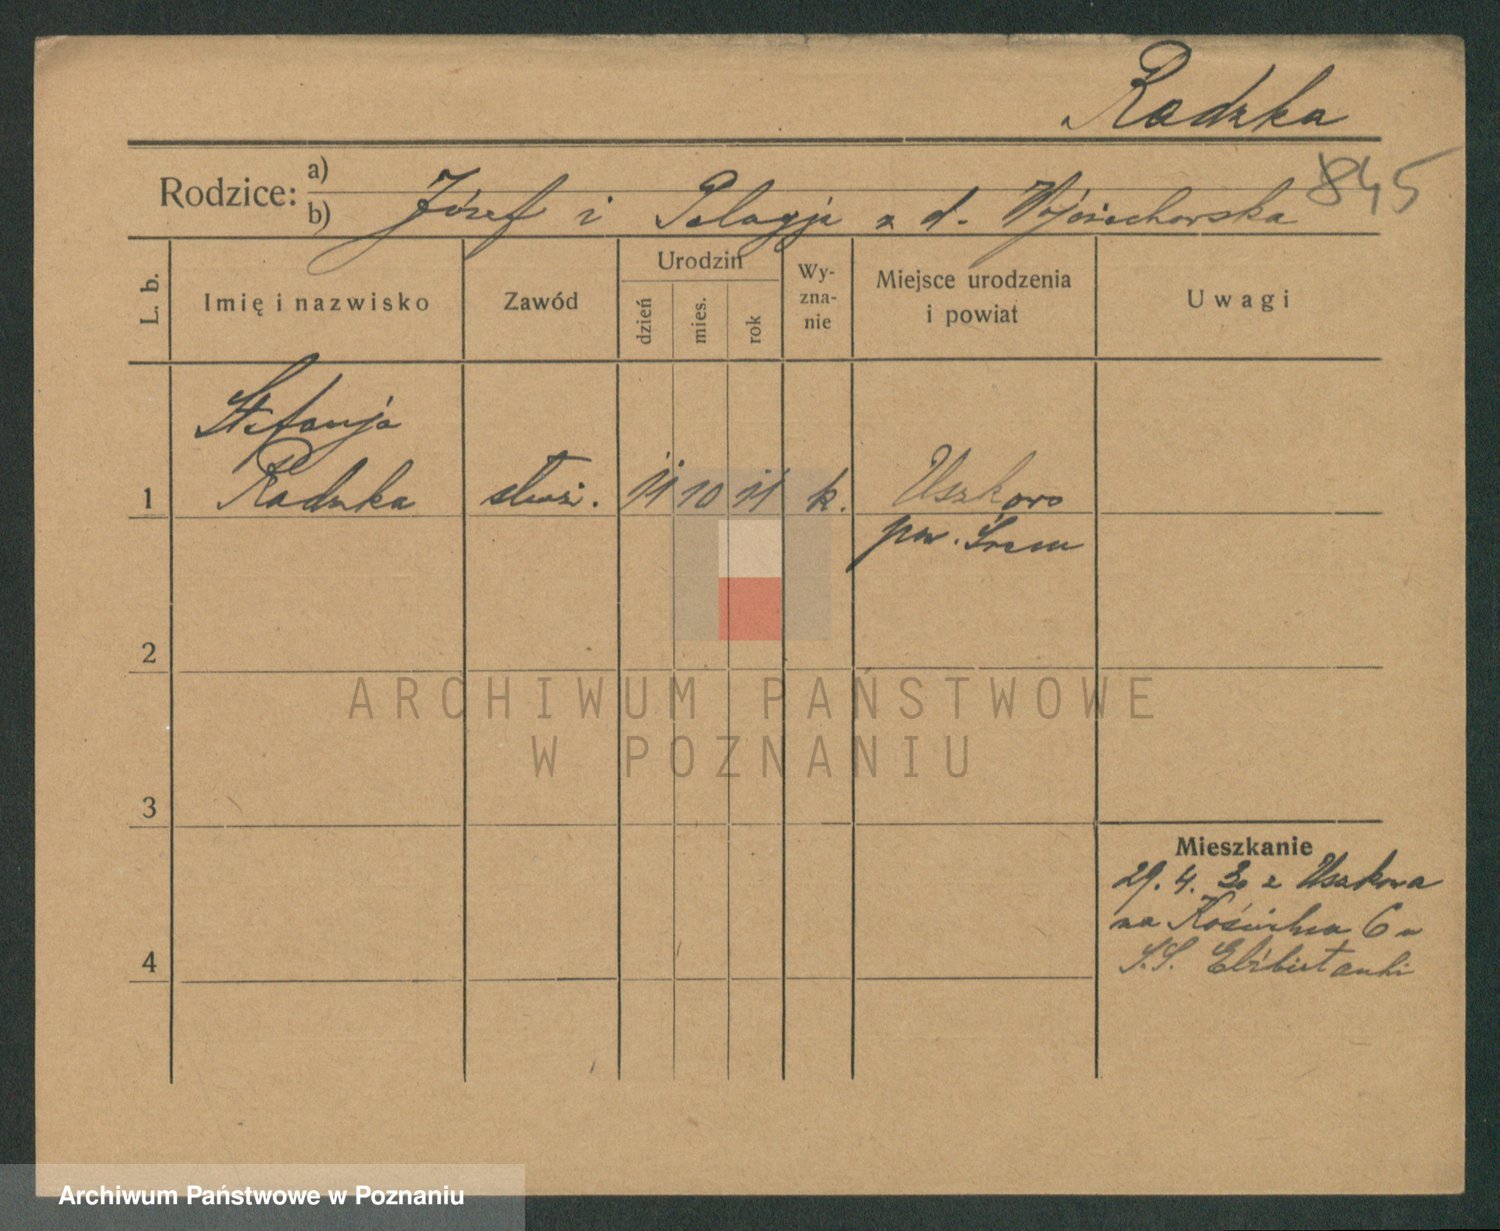 Radzka
845
Rodzice: a)
b)
Józef i Pelagja z d. Wojciechowska
L. b.
Imię i nazwisko
Zawód
Urodzin
dzień
mies.
rok
Wy-
zna-
nie
Miejsce urodzenia
i powiat
Uwagi
Stefanja
1 Radzka służ. 11 10 11 k. Uszkowo
pow. Śrem
2
3
4
Mieszkanie
29. 4. 30 z Uszkowa
na 6 u
S.S. Elżbietanki
ARCHIWUM PAŃSTWOWE
W POZNANIU
Archiwum Państwowe w Poznaniu